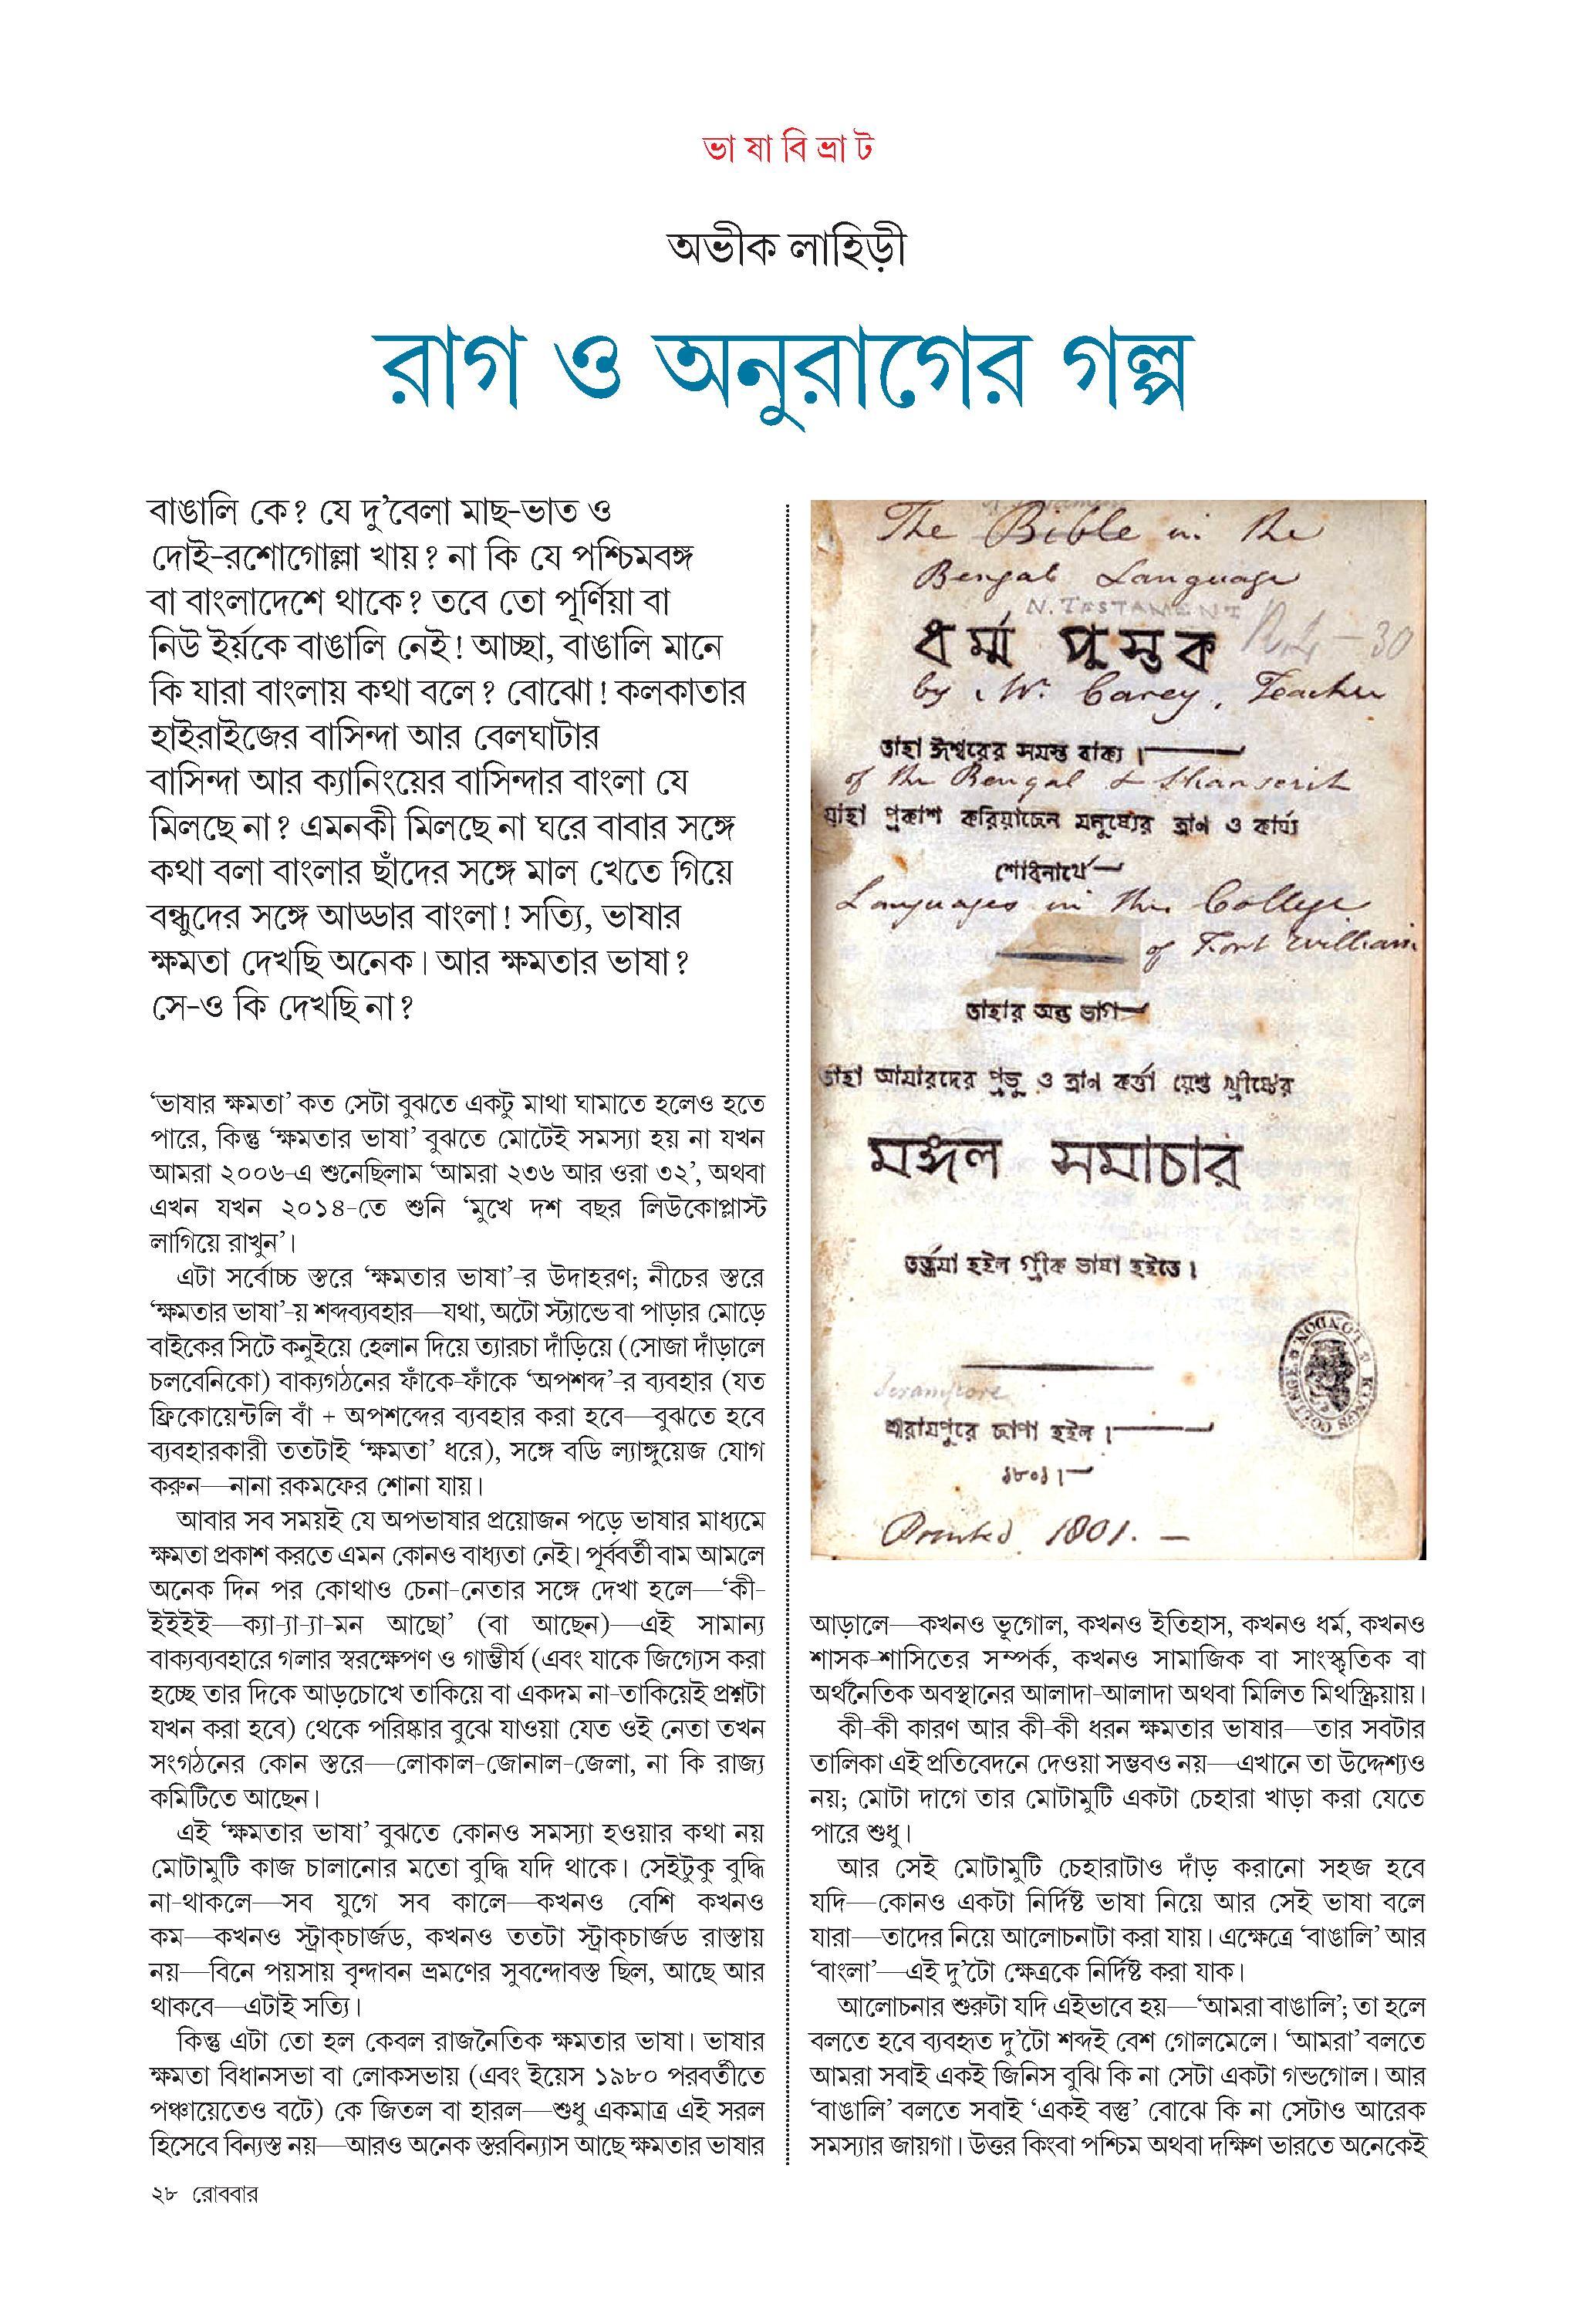 ভাষাবিভ্রাট
অভীক লাহিড়ী
রাগ ও অনুরাগের গল্প
বাঙালি কে? যে দু’বেলা মাছ-ভাত ও
দোই-রশোগোল্লা খায়? না কি যে পশ্চিমবঙ্গ
বা বাংলাদেশে থাকে? তবে তো পূর্ণিয়া বা
নিউ ইর্য়কে বাঙালি নেই! আচ্ছা, বাঙালি মানে
কি যারা বাংলায় কথা বলে? বোঝো! কলকাতার
হাইরাইজের বাসিন্দা আর বেলঘাটার
বাসিন্দা আর ক্যানিংয়ের বাসিন্দার বাংলা যে
মিলছে না? এমনকী মিলছে না ঘরে বাবার সঙ্গে
কথা বলা বাংলার ছাঁদের সঙ্গে মাল খেতে গিয়ে
বন্ধুদের সঙ্গে আড্ডার বাংলা! সত্যি, ভাষার
ক্ষমতা দেখছি অনেক। আর ক্ষমতার ভাষা?
সে-ও কি দেখছি না?
‘ভাষার ক্ষমতা’ কত সেটা বুঝতে একটু মাথা ঘামাতে হলেও হতে
পারে, কিন্তু ‘ক্ষমতার ভাষা’ বুঝতে মোটেই সমস্যা হয় না যখন
আমরা ২০০৬-এ শুনেছিলাম ‘আমরা ২৩৬ আর ওরা ৩২’, অথবা
এখন যখন ২০১৪-তে শুনি ‘মুখে দশ বছর লিউকোপ্লাস্ট
লাগিয়ে রাখুন’।
এটা সর্বোচ্চ স্তরে ‘ক্ষমতার ভাষা’-র উদাহরণ; নীচের স্তরে
‘ক্ষমতার ভাষা’-য় শব্দব্যবহার—যথা, অটো স্ট্যান্ডে বা পাড়ার মোড়ে
বাইকের সিটে কনুইয়ে হেলান দিয়ে ত্যারচা দাঁড়িয়ে (সোজা দাঁড়ালে
চলবেনিকো) বাক্যগঠনের ফাঁকে-ফাঁকে ‘অপশব্দ’-র ব্যবহার (যত
ফ্রিকোয়েন্টলি বাঁ + অপশব্দের ব্যবহার করা হবে—বুঝতে হবে
ব্যবহারকারী ততটাই ‘ক্ষমতা’ ধরে), সঙ্গে বডি ল্যাঙ্গুয়েজ যোগ
করুন—নানা রকমফের শোনা যায়।
আবার সব সময়ই যে অপভাষার প্রয়োজন পড়ে ভাষার মাধ্যমে
ক্ষমতা প্রকাশ করতে এমন কোনও বাধ্যতা নেই। পূর্ববর্তী বাম আমলে
অনেক দিন পর কোথাও চেনা-নেতার সঙ্গে দেখা হলে—‘কী-
ইইইই—ক্যা-্যা-্যা-মন আছো’ (বা আছেন)—এই সামান্য
বাক্যব্যবহারে গলার স্বরক্ষেপণ ও গাম্ভীর্য (এবং যাকে জিগ্যেস করা
হচ্ছে তার দিকে আড়চোখে তাকিয়ে বা একদম না-তাকিয়েই প্রশ্নটা
যখন করা হবে) থেকে পরিষ্কার বুঝে যাওয়া যেত ওই নেতা তখন
সংগঠনের কোন স্তরে—লোকাল-জোনাল-জেলা, না কি রাজ্য
কমিটিতে আছেন।
এই ‘ক্ষমতার ভাষা’ বুঝতে কোনও সমস্যা হওয়ার কথা নয়
মোটামুটি কাজ চালানোর মতো বুদ্ধি যদি থাকে। সেইটুকু বুদ্ধি
না-থাকলে—সব যুগে সব কালে—কখনও বেশি কখনও
কম—কখনও স্ট্রাক্‌চার্জড, কখনও ততটা স্ট্রাক্‌চার্জড রাস্তায়
নয়—বিনে পয়সায় বৃন্দাবন ভ্রমণের সুবন্দোবস্ত ছিল, আছে আর
থাকবে—এটাই সত্যি।
কিন্তু এটা তো হল কেবল রাজনৈতিক ক্ষমতার ভাষা। ভাষার
ক্ষমতা বিধানসভা বা লোকসভায় (এবং ইয়েস ১৯৮০ পরবর্তীতে
পঞ্চায়েতেও বটে) কে জিতল বা হারল—শুধু একমাত্র এই সরল
হিসেবে বিন্যস্ত নয়—আরও অনেক স্তরবিন্যাস আছে ক্ষমতার ভাষার
The Bible in the
Bengal Language
N. TESTAMENT
ধর্ম্ম পুস্তক
by W. Carey, Teacher
তাহা ঈশ্বরের সমস্ত বাক্য।
of the Bengal & Shanscrit
যাহা প্রকাশ করিয়াছেন মনুষ্যের ত্রাণ ও কার্য্য
শোধনার্থে
Languages in the College
of Fort William
তাহার অন্ত ভাগ
তাহা আমারদের প্রভু ও ত্রাণ কর্ত্তা য়েশু খ্রীষ্টের
মঙ্গল সমাচার
তর্জ্জমা হইল গ্রীক ভাষা হইতে।
KINGS COLLEGE LONDON
Serampore
শ্রীরামপুরে ছাপা হইল।
১৮০১।
Printed 1801.
আড়ালে—কখনও ভূগোল, কখনও ইতিহাস, কখনও ধর্ম, কখনও
শাসক-শাসিতের সম্পর্ক, কখনও সামাজিক বা সাংস্কৃতিক বা
অর্থনৈতিক অবস্থানের আলাদা-আলাদা অথবা মিলিত মিথস্ক্রিয়ায়।
কী-কী কারণ আর কী-কী ধরন ক্ষমতার ভাষার—তার সবটার
তালিকা এই প্রতিবেদনে দেওয়া সম্ভবও নয়—এখানে তা উদ্দেশ্যও
নয়; মোটা দাগে তার মোটামুটি একটা চেহারা খাড়া করা যেতে
পারে শুধু।
আর সেই মোটামুটি চেহারাটাও দাঁড় করানো সহজ হবে
যদি—কোনও একটা নির্দিষ্ট ভাষা নিয়ে আর সেই ভাষা বলে
যারা—তাদের নিয়ে আলোচনাটা করা যায়। এক্ষেত্রে ‘বাঙালি’ আর
‘বাংলা’—এই দু’টো ক্ষেত্রকে নির্দিষ্ট করা যাক।
আলোচনার শুরুটা যদি এইভাবে হয়—‘আমরা বাঙালি’; তা হলে
বলতে হবে ব্যবহৃত দু’টো শব্দই বেশ গোলমেলে। ‘আমরা’ বলতে
আমরা সবাই একই জিনিস বুঝি কি না সেটা একটা গন্ডগোল। আর
‘বাঙালি’ বলতে সবাই ‘একই বস্তু’ বোঝে কি না সেটাও আরেক
সমস্যার জায়গা। উত্তর কিংবা পশ্চিম অথবা দক্ষিণ ভারতে অনেকেই
২৮ রোববার